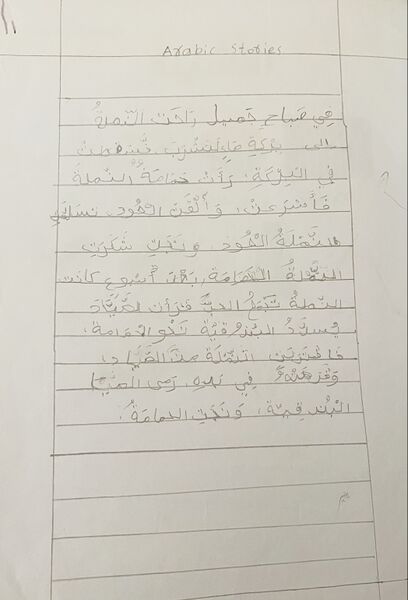 Arabic Stories
في صَباحٍ جَميلٍ رَاحَتْ النَّملةُ
الى بركةِ ماءٍ لتشرَبَ فَسَقطت
في البِرْكَةِ، رَأَتْ حَمَامَةٌ النملةَ
فَأَسْرَعَتْ، وَأَلْقَت العُود
النَّملةُ العُودَ وَنَجَتْ شَكَرَتِ
النَّملةُ الحَمَامَةَ، بَعْدَ أُسْبوع كانَت
النملةُ تَجْمَعُ الحبَّ فَرَأت الصَّيَّادَ
يُسدِّدُ البُندُقيَّة نَحْوَ الحمامة،
فاقتربَت النملة منَ الصَّيَّاد،
في يده، رَمى
البُندقيَّة، وَنَجَتِ الحمامةُ.